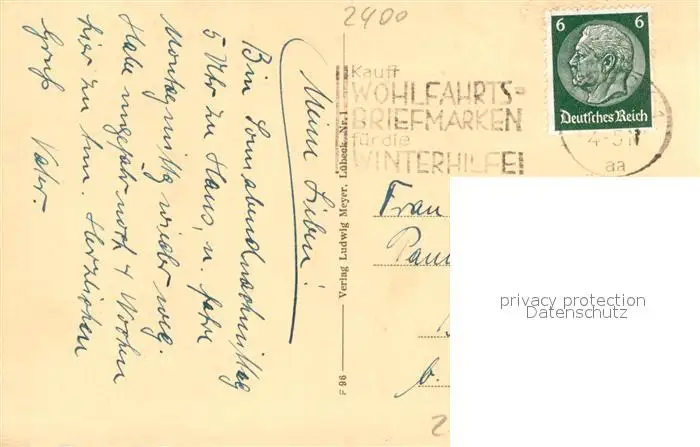 Meine Lieben!
Bin Sonnabendnachmittag
5 Uhr zu Haus, u. fahre
Montagmittag wieder weg.
Habe ungefähr noch 4 Wochen
hier zu tun. Herzlichen
Gruß Vater.
F 96 Verlag Ludwig Meyer, Lübeck, Nr. 1
2400
Kauft
WOHLFAHRTS-
BRIEFMARKEN
für die
WINTERHILFE!
6 6
Deutsches Reich
aa
Frau
b.
privacy protection
Datenschutz